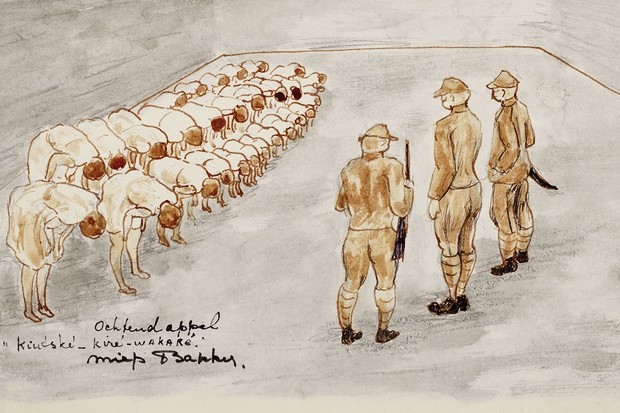 Ochtendappel
"Kiutské - Kiré - WAKARÉ."
Miep Bakker.